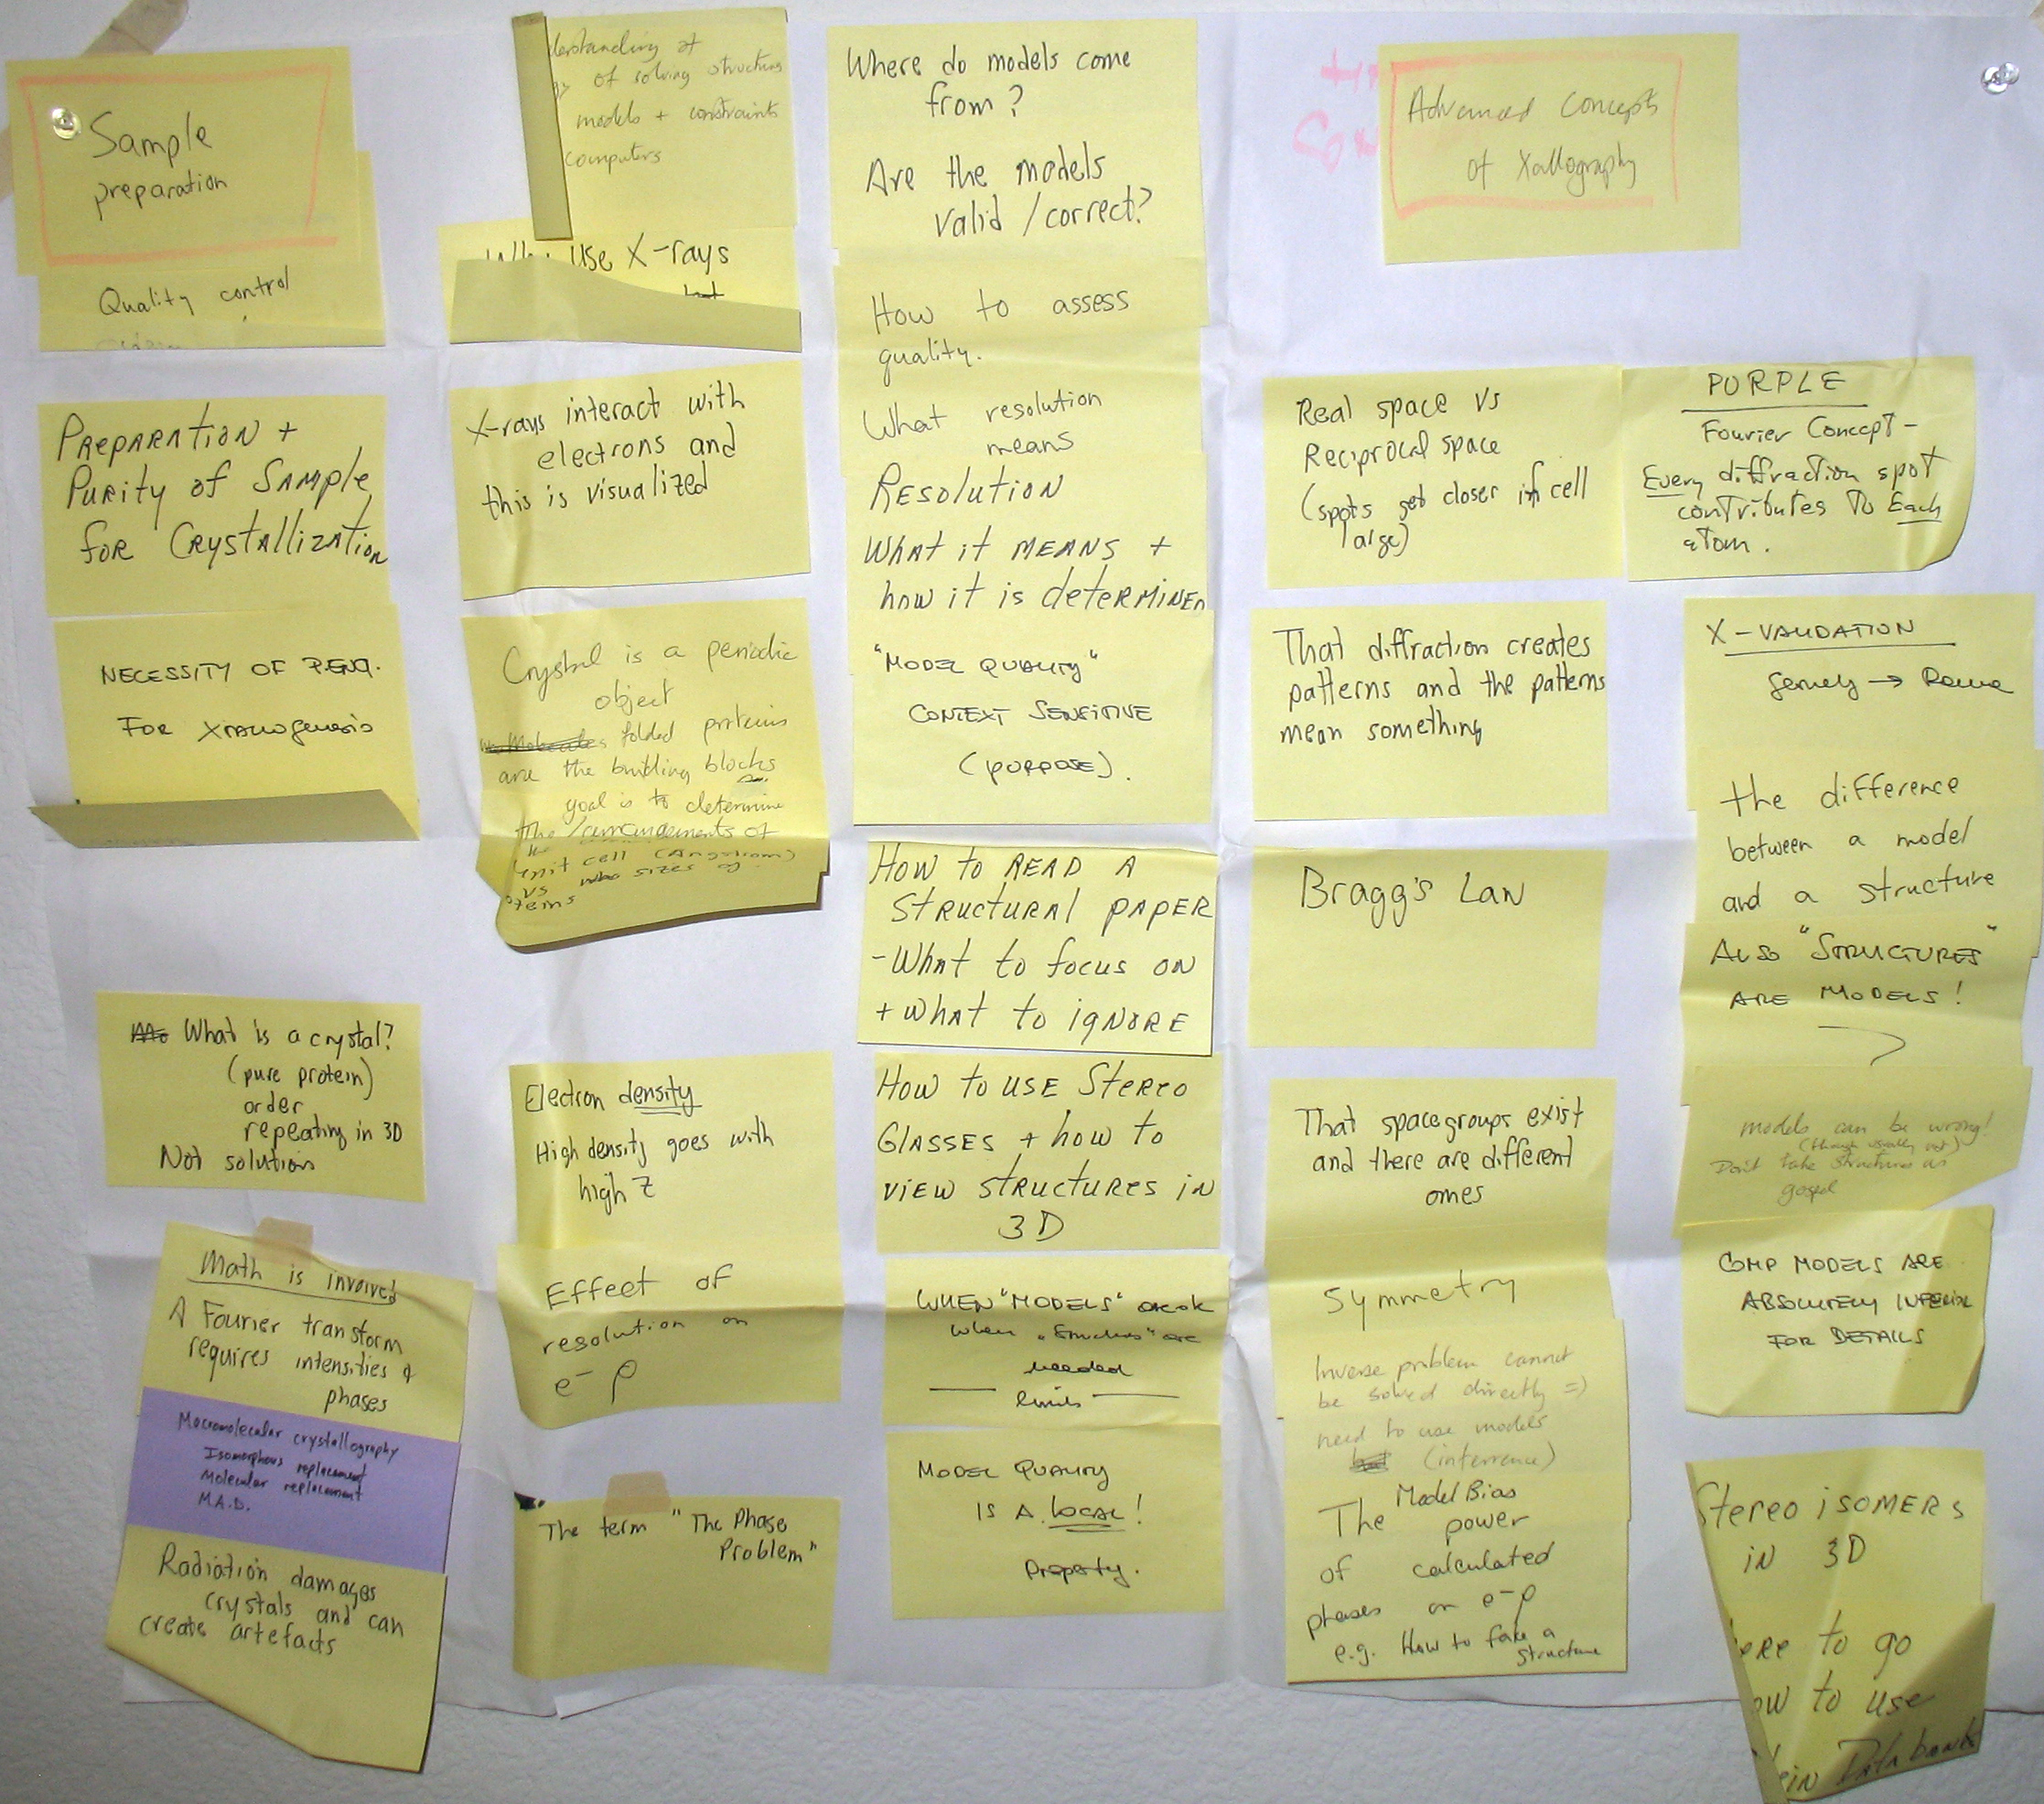 Sample
preparation
Quality control
PREPARATION +
PURITY of SAMPLE
for CRYSTALLIZATION
NECESSITY OF
FOR
What is a crystal?
(pure protein)
order
repeating in 3D
Not solution
Math is involved
A Fourier transform
requires intensities &
phases
Macromolecular crystallography
Isomorphous replacement
Molecular replacement
M.A.D.
Radiation damages
crystals and can
create artefacts
of solving structures
models + constraints
computers
Use X-rays
X-rays interact with
electrons and
this is visualized
Crystal is a periodic
object
folded proteins
are the building blocks
goal is to determine
the
unit cell (Angstrom)
vs sizes of
Electron density
High density goes with
high Z
Effect of
resolution on
e⁻ ρ
The term "The Phase
Problem"
Where do models come
from?
Are the models
valid / correct?
How to assess
quality.
What resolution
means
RESOLUTION
WHAT it MEANS +
how it is deterMINED
"MODEL QUALITY"
CONTEXT SENSITIVE
(PURPOSE).
How to READ A
STRUCTURAL PAPER
- WHAT to focus on
+ WHAT to ignore
How to use Stereo
GLASSES + how to
VIEW STRUCTURES in
3D
WHEN "MODELS" are ok
when "Structures" are
needed
limits
MODEL QUALITY
IS A LOCAL!
Property.
Advanced Concepts
of Xallography
Real space vs
Reciprocal space
(spots get closer if cell
large)
That diffraction creates
patterns and the patterns
mean something
Bragg's Law
That spacegroups exist
and there are different
ones
Symmetry
Inverse problem cannot
be solved directly =>
need to use models
(interrence)
Model Bias
The power
of calculated
phases on e⁻ρ
e.g. How to fake a
structure
PURPLE
Fourier Concept -
Every diffraction spot
contributes to Each
atom.
X-VALIDATION
→
the difference
between a model
and a structure
ALSO "STRUCTURES"
ARE MODELS!
models can be wrong!
(though usually not)
Don't take structures as
gospel
COMP MODELS ARE
ABSOLUTELY INFERIOR
FOR DETAILS
Stereo isomers
in 3D
to go
to use
Databanks